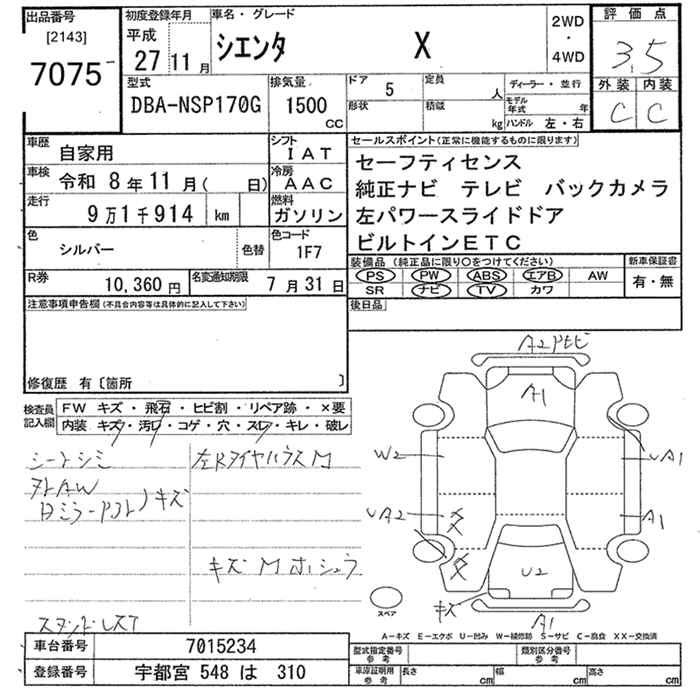 出品番号
[2143]
7075
初度登録年月
平成
27 11 月
車名・グレード
シエンタ X
2WD
・
4WD
評価点
3.5
外装 内装
C C
型式
DBA-NSP170G
排気量
1500
CC
ドア
5
定員
人
形状
積載
kg
ディーラー・並行
モデル年式 年
ハンドル 左・右
車歴
自家用
シフト
IAT
車検
令和 8年 11月( 日)
冷房
AAC
走行
9万1千914 km
燃料
ガソリン
色
シルバー
色替
色コード
1F7
R券
10,360 円
名変通知期限
7月31日
セールスポイント(正常に機能するものに限ります)
セーフティセンス
純正ナビ テレビ バックカメラ
左パワースライドドア
ビルトインETC
装備品 (純正品に限り○をつけてください)
PS PW ABS エアB AW
SR ナビ TV カワ
新車保証書
有・無
後日品
注意事項申告欄(不具合内容等は具体的に記入して下さい)
修復歴 有〔箇所 〕
検査員記入欄
FW キズ・飛石・ヒビ割・リペア跡・×要
内装 キズ・汚レ・コゲ・穴・スレ・キレ・破レ
シートシミ
左RタイヤハウスM
キズ
キズ M ホシュウ
A2
A1
W2
UA1
UA2
A1
U2
キズ
A1
スペア
A-キズ E-エクボ U-凹み W-補修跡 S-サビ C-腐食 XX-交換済
車台番号 7015234
登録番号 宇都宮 548 は 310
型式指定番号 参考
類別区分番号 参考
車庫証明用 参考
長さ cm 幅 cm 高さ cm